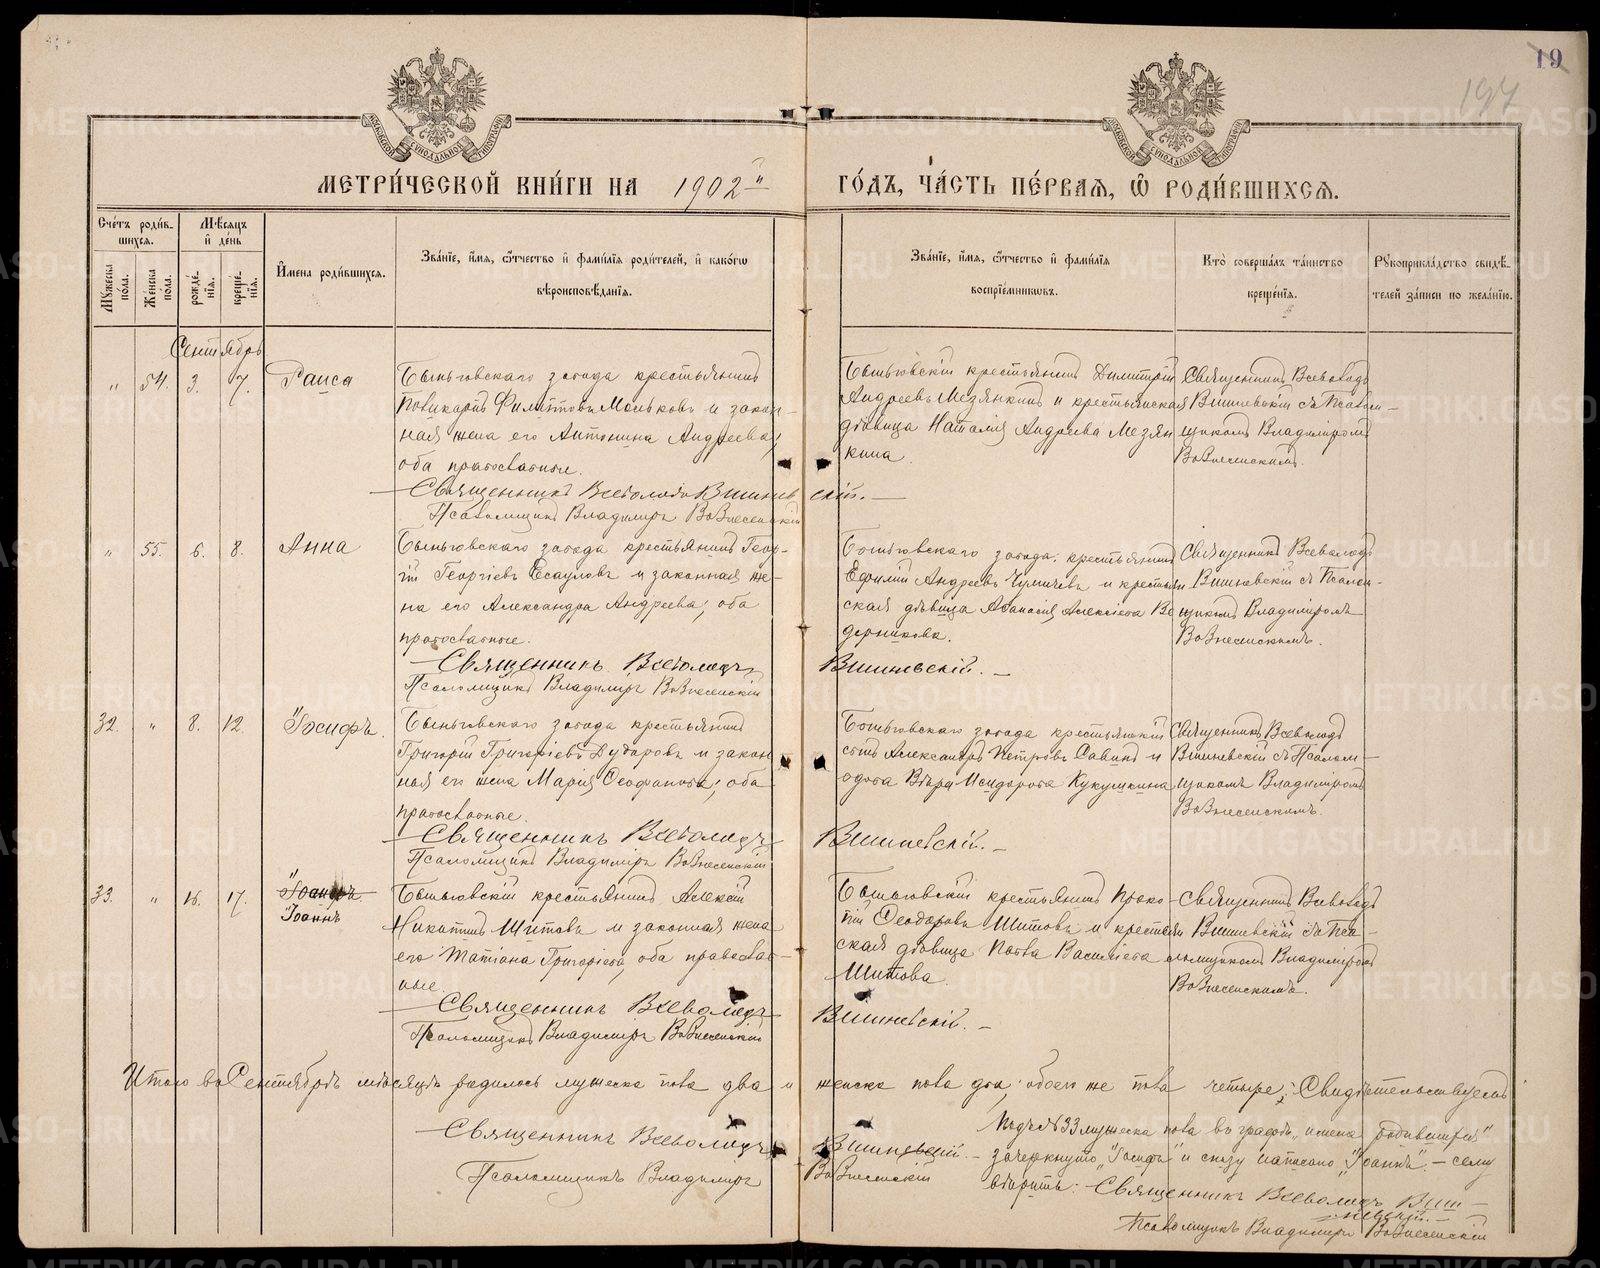 19
197
МОСКОВСКОЙ СѴНОДАЛЬНОЙ ТИПОГРАФІИ
МОСКОВСКОЙ СѴНОДАЛЬНОЙ ТИПОГРАФІИ
МЕТРИ́ЧЕСКОЙ КНИ́ГИ НА 1902й ГО́ДЪ, ЧА́СТЬ ПЕ́РВАЯ, Ѡ҆ РОДИ́ВШИХСЯ.
Сче́тъ роди́в-
шихся.
Мѣ́сяцъ
и҆ де́нь
Му́жеска
по́ла.
Же́нска
по́ла.
рожде́-
нїя.
креще́-
нїя.
И҆мена роди́вшихся.
Зва́нїе, и҆́мя, ѻ҆́тчество и҆ фами́лїя роди́телей, и҆ како́гѡ
вѣроисповѣ́данїя.
Зва́нїе, и҆́мя, ѻ҆́тчество и҆ фами́лїя
воспрїе́мниковъ.
Кто̀ соверша́лъ та́инство
креще́нїя.
Рꙋкоприкла́дство свидѣ́-
телей за́писи по жела́нїю.
Сентябрь
" 54. 3. 7. Раиса
Быньговскаго завода крестьянинъ
Поликарпъ Филипповъ Маньковъ и закон-
ная жена его Антонина Андреева,
оба православные.
Священникъ Всеволодъ Вишнев скій. —
Псаломщикъ Владимиръ Вознесенскій
Быньговскій крестьянинъ Димитрій
Андреевъ Мезянкинъ и крестьянская
дѣвица Наталія Андреева Мезян
кина.
Священникъ Всеволодъ
Вишневскій съ Псалом-
щикомъ Владиміромъ
Вознесенскимъ.
" 55. 6. 8. Анна
Быньговскаго завода крестьянинъ Геор-
гій Георгіевъ Есауловъ и законная же-
на его Александра Андреева; оба
православные.
Священникъ Всеволодъ Вишневскій. —
Псаломщикъ Владимиръ Вознесенскій
Быньговскаго завода крестьянинъ
Ефимій Андреевъ Чумичевъ и крестьян
ская дѣвица Аѳанасія Алексіева Ве
дерникова.
Священникъ Всеволодъ
Вишневскій съ Псалом-
щикомъ Владиміромъ
Вознесенскимъ.
32. " 8. 12. Іосифъ.
Быньговскаго завода крестьянинъ
Григорій Григоріевъ Дударовъ и закон
ная его жена Марія Ѳеофанова; оба
православные.
Священникъ Всеволодъ Вишневскій. —
Псаломщикъ Владиміръ Вознесенскій
Быньговскаго завода крестьянскій
сынъ Александръ Петровъ Савинъ и
вдова Вѣра Исидорова Кукушкина
Священникъ Всеволодъ
Вишневскій съ Псалом-
щикомъ Владиміромъ
Вознесенскимъ.
33. " 16. 17. Іосифъ
Іоаннъ
Быньговскій крестьянинъ Алексій
Никитинъ Шитовъ и законная жена
его Татіана Григоріева, оба православ-
ные.
Священникъ Всеволодъ Вишневскій. —
Псаломщикъ Владимиръ Вознесенскій
Быньговскій крестьянинъ Проко-
пій Ѳеодоровъ Шитовъ и крестьян
ская дѣвица Васильева
Шитова.
Священникъ Всеволодъ
Вишневскій съ Пса-
ломщикомъ Владиміромъ
Вознесенскимъ.
Итого въ Сентябрѣ мѣсяцѣ родилось мужеска пола два и женска пола два; обоего же пола четыре; Свидѣтельствуемъ
Священникъ Всеволодъ Вишневскій. —
Псаломщикъ Владимиръ Вознесенскій
Подъ № 33 мужеска пола въ графѣ „имена родившихся"
зачеркнуто „Іосифъ" и снизу написано „Іоаннъ". — сему
вѣрить: Священникъ Всеволодъ Виш-
невскій. —
Псаломщикъ Владимиръ Вознесенскій
METRIKI.GASO-URAL.RU